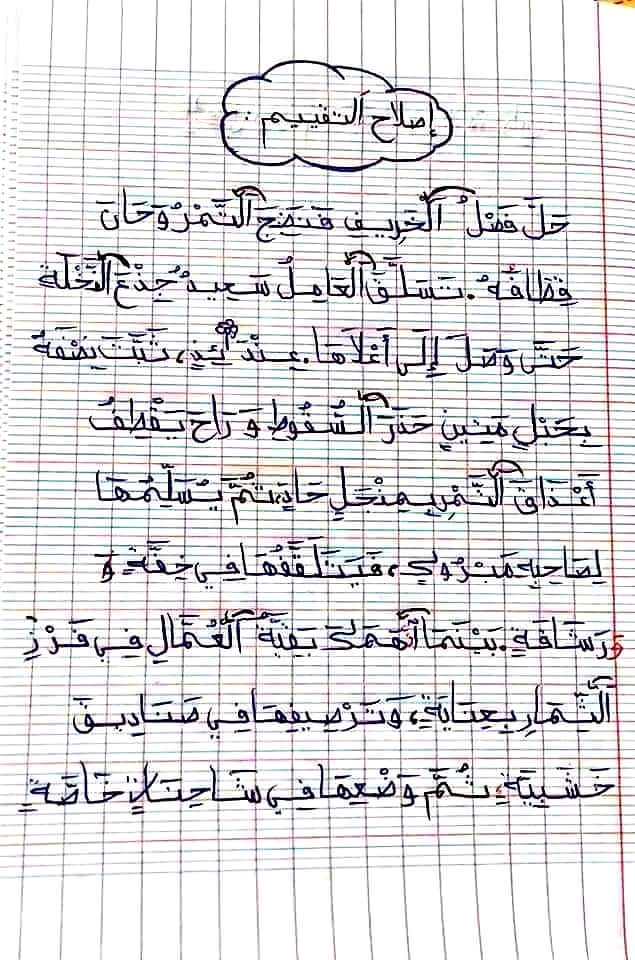 إصلاح التقييم :
حَلَّ فَصْلُ الْخَرِيفِ فَنَضِجَ التَّمْرُ وَحَانَ
قِطَافُهُ. تَسَلَّقَ الْعَامِلُ سَعِيدُ جِذْعَ النَّخْلَةِ
حَتَّى وَصَلَ إِلَى أَعْلَاهَا. عِنْدَئِذٍ، ثَبَّتَ نَفْسَهُ
بِحَبْلٍ مَتِينٍ حَذَرَ السُّقُوطِ وَرَاحَ يَقْطِفُ
أَعْذَاقَ التَّمْرِ بِمِنْجَلٍ حَادٍّ، ثُمَّ يُسَلِّمُهَا
لِصَاحِبِهِ مَبْرُوكٍ، فَيَتَلَقَّفُهَا فِي خِفَّةٍ وَ
رَشَاقَةٍ. بَيْنَمَا انْهَمَكَ بَقِيَّةُ الْعُمَّالِ فِي فَرْزِ
الثِّمَارِ بِعِنَايَةٍ، وَتَرْصِيفِهَا فِي صَنَادِيقَ
خَشَبِيَّةٍ، ثُمَّ وَضْعِهَا فِي شَاحِنَاتٍ خَاصَّةٍ